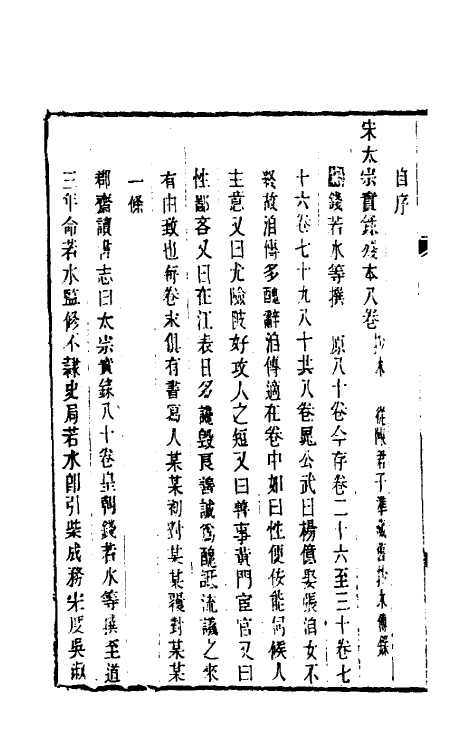 自序
宋太宗實錄殘本八卷抄本 從陳君子準藏舊抄本傳錄
宋錢若水等撰 原八十卷今存卷二十六至三十卷七
十六卷七十九八十共八卷晁公武曰楊億娶張洎女不
終故洎傳多醜辭洎傳適在卷中如曰性便佞能伺候人
主意又曰尤險詖好攻人之短又曰轉事黃門宦官又曰
性鄙吝又曰在江表日多讒毀良善誠爲醜詆流議之來
有由致也每卷末俱有書寫人某某初對某某覆對某某
一條
郡齋讀書志曰太宗實錄八十卷皇朝錢若水等撰至道
三年命若水監修不隸史局若水即引柴成務宋度吳淑